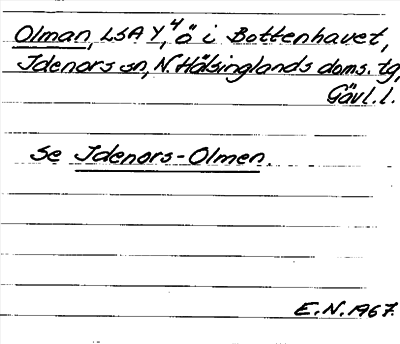 Olman, LSA Y,4 ö i Bottenhavet,
Idenors sn, N. Hälsinglands doms. tg,
Gävl. l.
Se Idenors-Olmen.
E.N. 1967.